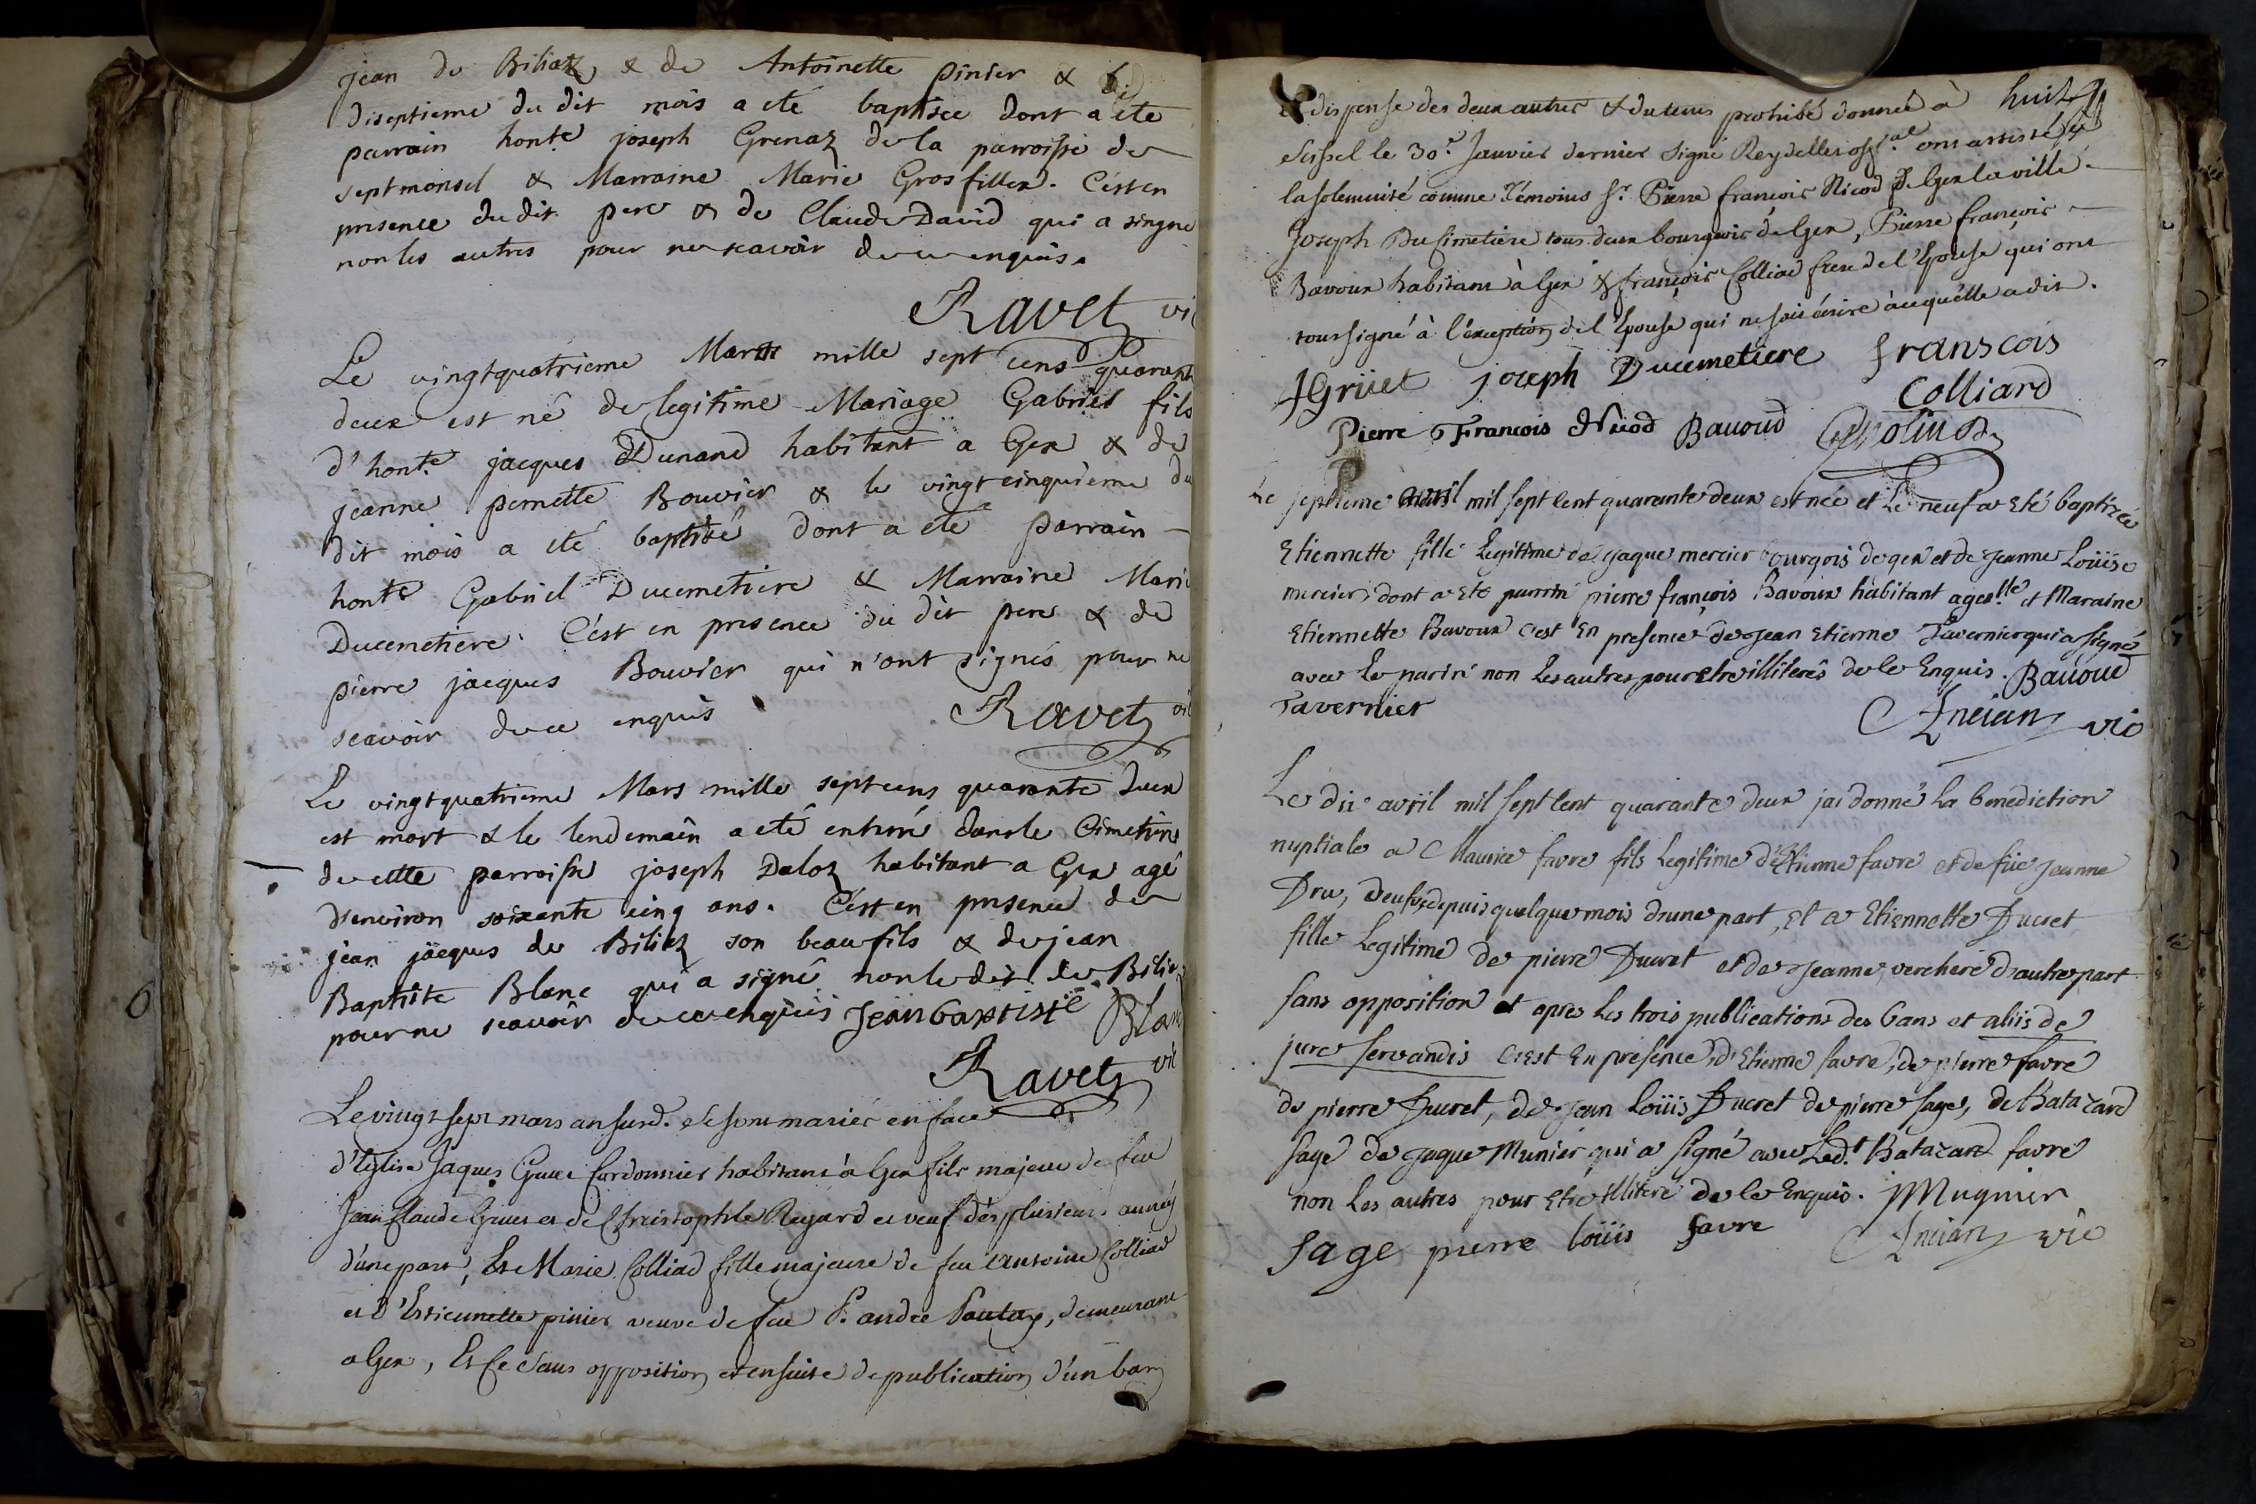 jean de Biliaz & de Antoinette pinier & le
diseptieme du dit mois a eté baptisee dont a ete
parrain honte joseph Grenaz de la parroisse de
septmonsel & Marraine Marie Grosfillex. C'est en
presence du dit pere & de Claude David qui a singne
non les autres pour ne scavoir de ce enquis.
Ravet vic
Le vingtquatrieme Mars mille sept cens quarante
deux est né de legitime Mariage Gabriel fils
d'honte jacques Dunand habitant a Gex & de
jeanne pernette Bouvier & le vingt cinquieme du
dit mois a eté baptisé dont a ete parrain
honte Gabriel Ducemetiere & Marraine Marie
Ducemetiere C'est en presence du dit pere & de
pierre jacques Bouvier qui n'ont signés pour ne
scavoir de ce enquis
Ravet vic
Le vingtquatrieme Mars mille sept cens quarante deux
est mort & le lendemain a eté enterré dans le Cimetiere
de cette parroisse joseph Daloz habitant a Gex agé
d'environ soixante cinq ans. C'est en presence de
jean jacques de Biliaz son beaufils & de jean
Baptiste Blanc qui a signé non le dit de Biliaz
pour ne scavoir de ce enquis jean baptiste Blanc
Ravet vic
Le vingt sept mars an susd. se sont mariés en face
d'Eglise Jaques Gruet Cordonnier habitant à Gex fils majeur de feu
Jean Claude Gruet et de Christophle Regard et veuf dès plusieurs années
d'une part, Et Marie Colliad fille majeure de feu Antoine Colliad
et d'Estiennette pinier veuve de feu P. andré, demeurante
a Gex, Et Ce sans opposition et ensuite de publication d'un ban
& dispense des deux autres & du tems prohibé donnée à huit
Seissel le 30e Janvier dernier signé Reydellet offial ont assisté à
la solemnité comme Témoins Sr. Pierre françois Nicod de Gex la ville
Joseph Du Cimetiere tous deux bourgeois de Gex, Pierre françois
Bavoux habitant à Gex & françois Colliad frere de l'Epouse qui ont
tous signé à l'exception de l'Epouse qui ne sait écrire à ce qu'elle a dit.
JGrüet joseph Ducemetiere franscois
Colliard
Pierre François Nicod Bauoud
Le septieme avril mil sept cent quarante deux est née et Le neuf a Eté baptizée
Etiennette fille Legitime de jaque mercier bourgois de gex et de jeanne Loüise
mercier, dont a Eté parrin pierre françois Bavoux habitant a gex lle et Maraine
Etiennette Bavoux c'est En presence de jean Etienne Tavernier qui a signé
avec Le parin non Les autres pour etre illiterés de le Enquis. Bauoud
Tavernier
Ancian vic
Le dix avril mil sept cent quarante deux jai donné La benediction
nuptiale a Maurice favre fils Legitime d'Etienne favre et de füe jeanne
Dru, veuf depuis quelque mois d'une part, et a Etiennette Ducret
fille Legitime de pierre Ducret et de jeanne verchere d'autre part
sans opposition et apres Les trois publications des bans et aliis de
jure servandis c'est En presence d'Etienne favre, de pierre favre
de pierre Ducret, de jean Loüis Ducret de pierre sage, de Batazard
sage de jaque Munier qui a signé avec Led.t Batazard favre
non Les autres pour Etre illiteré de le Enquis. jMugnier
sage pierre loüis favre
Ancian vic